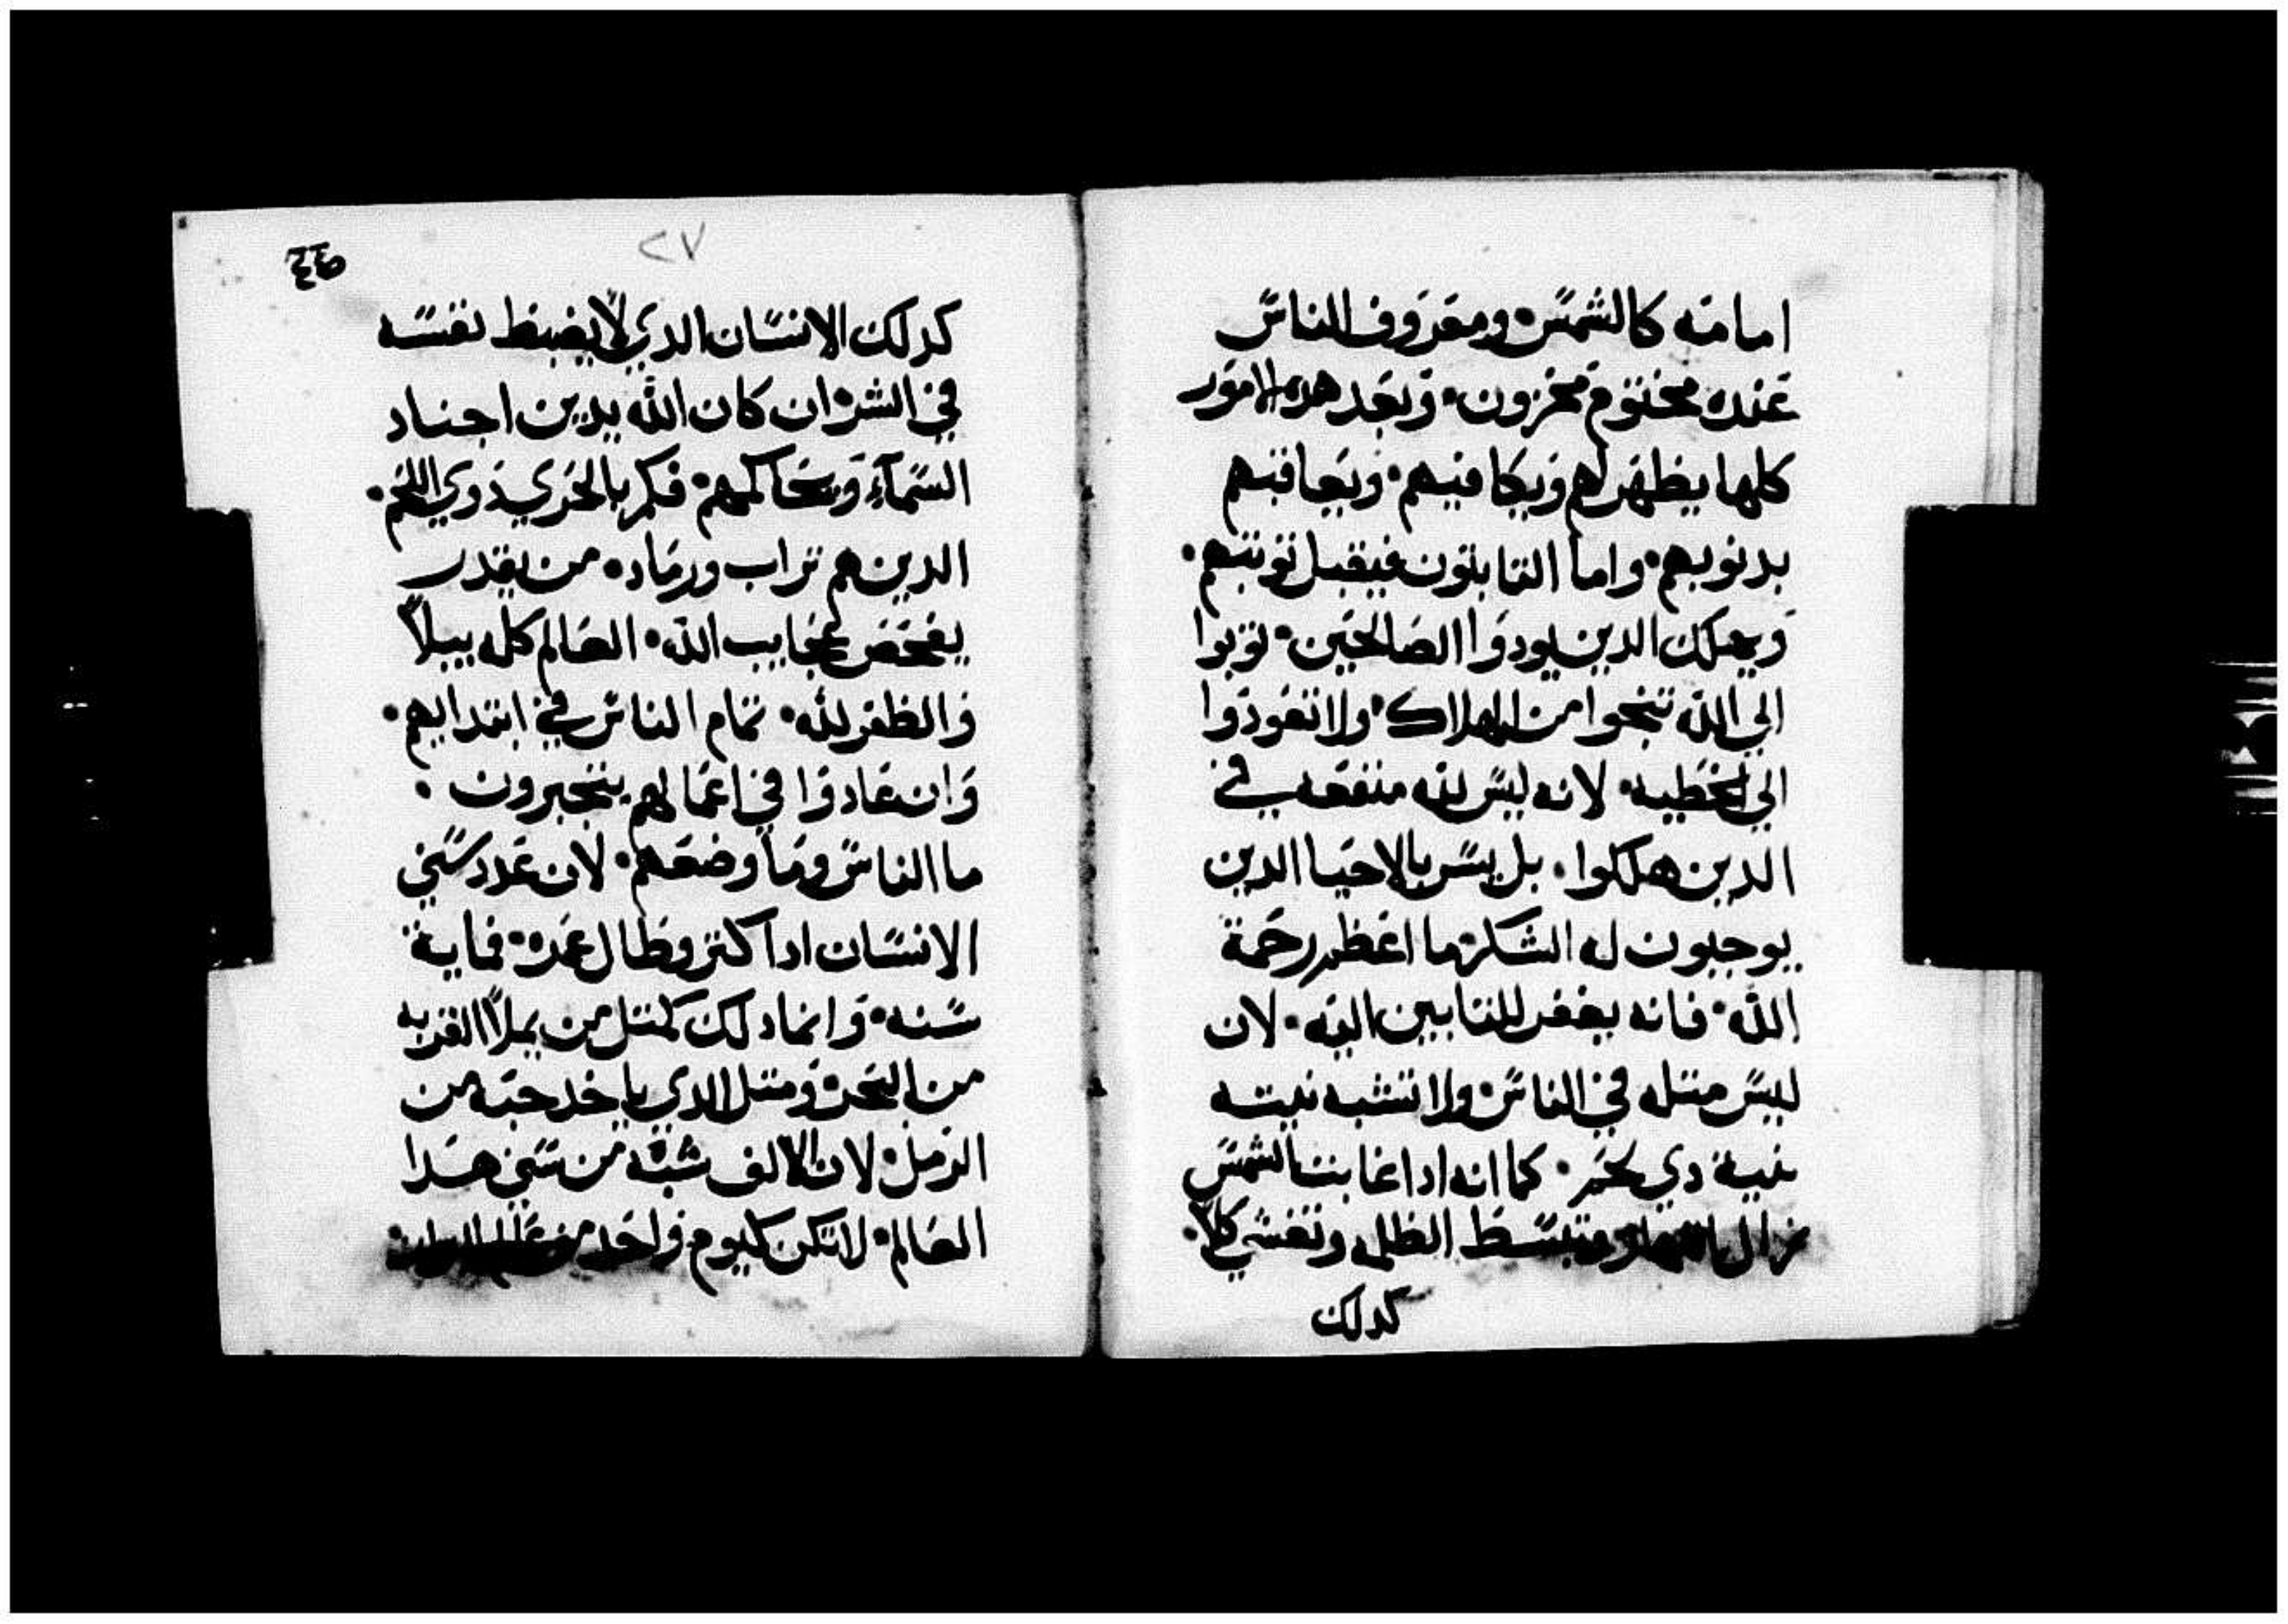 امامه كالشمس ومعروف الناس
عنده مختوم مخزون وبعد هده الامور
كلها يظهر لهم ويكافيهم وبعاقبهم
بدنوبهم واما التايبون فيقبل توبتهم
ويهلك الدين يودوا الصالحين توبوا
الي الله تنجوا من الهلاك ولا تعودوا
الي الخطيه لانه ليس لله منفعه في
الدين هلكوا بل يسر بالاحيا الدين
يوجبون له الشكر ما اعظم رحمة
الله فانه يغفر للتايبين اليه لان
ليس متله في الناس ولا تشبه نيته
بنية دي لحم كما انه ادا غابت الشمس
زال النهار وتبسط الظلمه وتغشي كلا
كدلك
٢٧
كدلك الانسان الدي لا يضبط نفسه
في الشر ان كان الله يدين اجناد
السمآء ويحاكمهم فكم بالحري دوي اللحم
الدين هم تراب ورماد من يقدر
يفحص عجايب الله العالم كله يبلا
والظفر لله تمام الناس في ابتدايهم
وان عادوا في اعمالهم يتجبرون
ما الناس وما وضعهم لان عدد سني
الانسان ادا كتر وطال عمره فماية
سنه وانما دلك كمتل من يملا القربه
من البحر ومتل الدي ياخد حبه من
الرمل لان الالف شبه من سني هدا
العالم لا تكن كيوم واحد من عالم